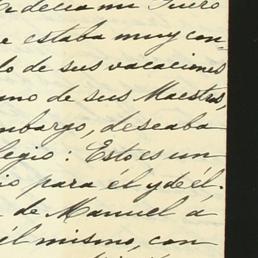 decia mi
estaba muy con-
lo de sus vacaciones
de sus Maestros,
embargo, deseaba
legio: Esto es un
para él y de él.
de Manuel á
él mismo, con